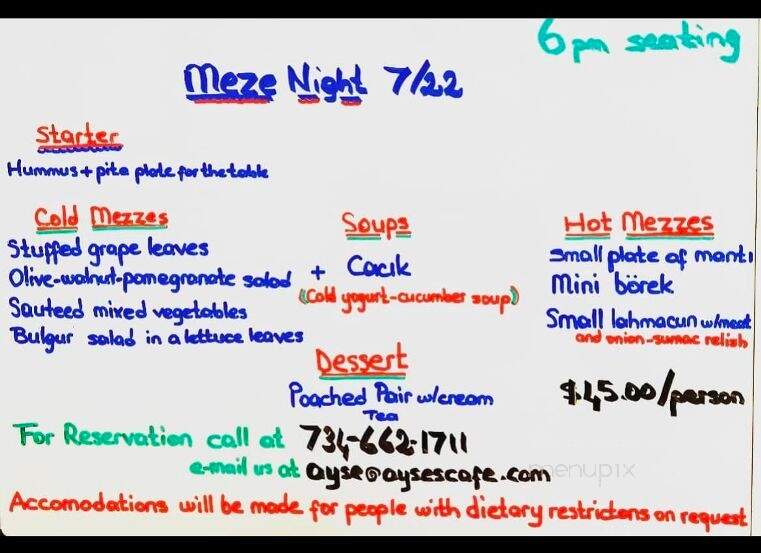 6pm seating
Meze Night 7/22
Starter
Hummus + pita plate for the table
Cold Mezzes
Stuffed grape leaves
Olive-walnut-pomegranate salad
Sauteed mixed vegetables
Bulgur salad in a lettuce leaves
+
Soups
Cacık
(Cold yogurt-cucumber soup)
Hot Mezzes
Small plate of mantı
Mini börek
Small lahmacun w/meat
and onion-sumac relish
Dessert
Poached Pair w/cream
Tea
$45.00/person
For Reservation call at 734-662-1711
e-mail us at ayse@aysescafe.com
menupix
Accomodations will be made for people with dietary restrictens on request